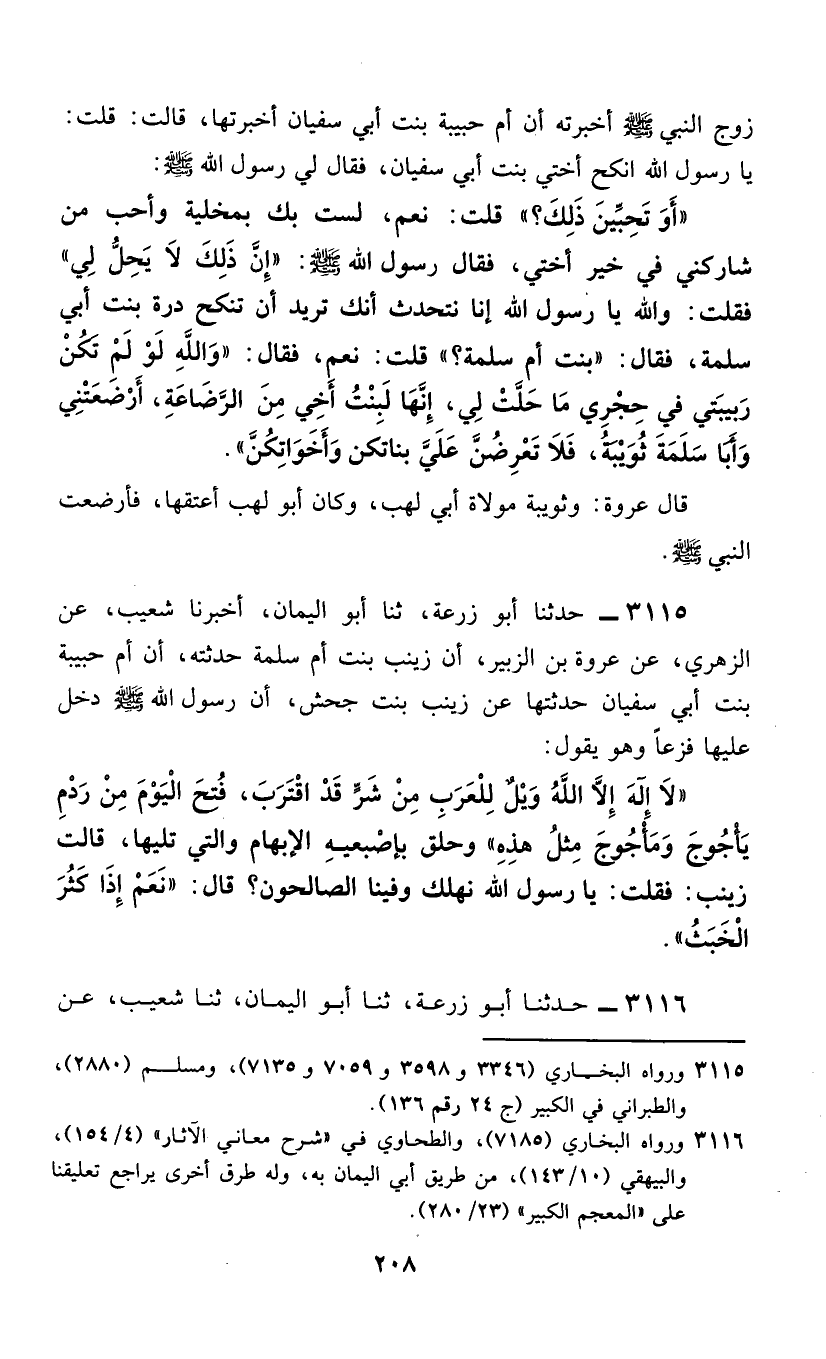 زوج النبي ﷺ أخبرته أن أم حبيبة بنت أبي سفيان أخبرتها، قالت: قلت:
يا رسول الله انكح أختي بنت أبي سفيان، فقال لي رسول الله ﷺ:
«أَوَ تَحِبِّينَ ذَلِكَ؟» قلت: نعم، لست بك بمخلية وأحب من
شاركني في خير أختي، فقال رسول الله ﷺ: «إِنَّ ذَلِكَ لاَ يَحِلُّ لِي»
فقلت: والله يا رسول الله إنا نتحدث أنك تريد أن تنكح درة بنت أبي
سلمة، فقال: «بنت أم سلمة؟» قلت: نعم، فقال: «وَاللَّهِ لَوْ لَمْ تَكُنْ
رَبِيبَتي في حِجْرِي مَا حَلَّتْ لِي، إِنَّهَا لَبِنْتُ أَخِي مِنَ الرَّضَاعَةِ، أَرْضَعَتْنِي
وَأَبَا سَلَمَةَ ثُوَيْبَةُ، فَلاَ تَعْرِضُنَّ عَلَيَّ بناتكن وَأَخَوَاتِكُنَّ».
قال عروة: وثويبة مولاة أبي لهب، وكان أبو لهب أعتقها، فأرضعت
النبي ﷺ.
٣١١٥ ــ حدثنا أبو زرعة، ثنا أبو اليمان، أخبرنا شعيب، عن
الزهري، عن عروة بن الزبير، أن زينب بنت أم سلمة حدثته، أن أم حبيبة
بنت أبي سفيان حدثتها عن زينب بنت جحش، أن رسول الله ﷺ دخل
عليها فزعاً وهو يقول:
«لاَ إِلَهَ إِلاَّ اللَّهُ وَيْلٌ لِلْعَرَبِ مِنْ شَرٍّ قَدْ اقْتَرَبَ، فُتِحَ الْيَوْمَ مِنْ رَدْمِ
يَأْجُوجَ وَمَأْجُوجَ مِثلُ هذِهِ» وحلق بإصْبعيـهِ الإبهام والتي تليها، قالت
زينب: فقلت: يا رسول الله نهلك وفينا الصالحون؟ قال: «نَعَمْ إِذَا كَثُرَ
الْخَبَثُ».
٣١١٦ ــ حدثنا أبو زرعة، ثنا أبو اليمان، ثنا شعيب، عن
٣١١٥ ورواه البخاري (٣٣٤٦ و ٣٥٩٨ و ٧٠٥٩ و ٧١٣٥)، ومسلم (٢٨٨٠)،
والطبراني في الكبير (ج ٢٤ رقم ١٣٦).
٣١١٦ ورواه البخاري (٧١٨٥)، والطحاوي في «شرح معاني الآثار» (٤/ ١٥٤)،
والبيهقي (١٠/ ١٤٣)، من طريق أبي اليمان به، وله طرق أخرى يراجع تعليقنا
على «المعجم الكبير» (٢٣/ ٢٨٠).
٢٠٨